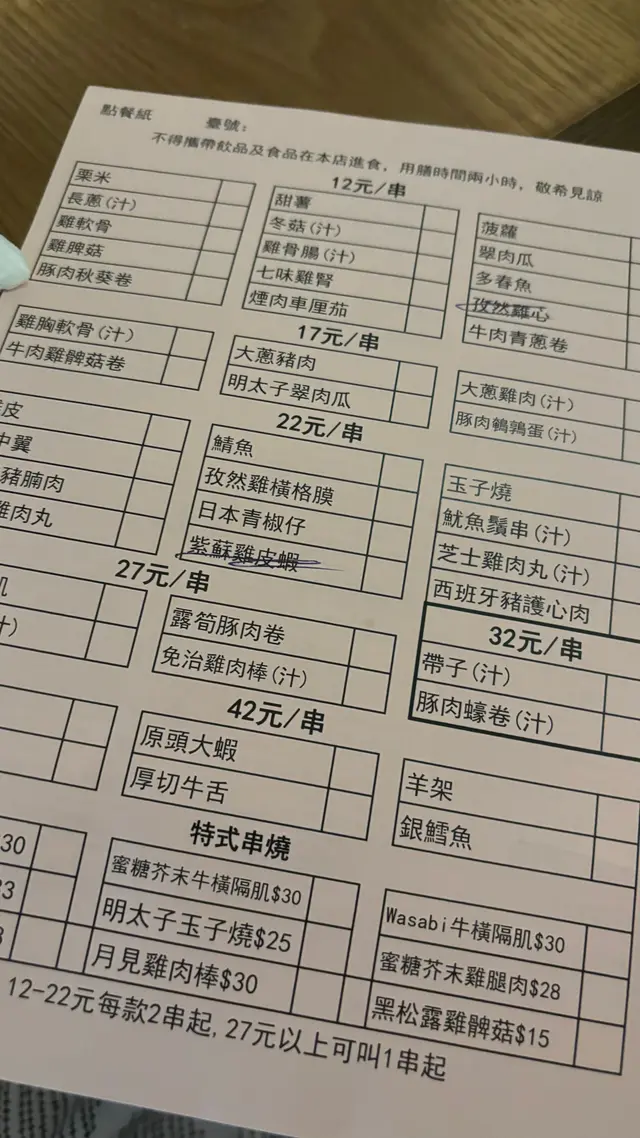 點餐紙 臺號：
不得攜帶飲品及食品在本店進食，用膳時間兩小時，敬希見諒
12元/串
栗米 甜薯 菠蘿
長蔥(汁) 冬菇(汁) 翠肉瓜
雞軟骨 雞骨腸(汁) 多春魚
雞脾菇 七味雞腎 孜然雞心
豚肉秋葵卷 煙肉車厘茄 牛肉青蔥卷
17元/串
雞胸軟骨(汁) 大蔥豬肉 大蔥雞肉(汁)
牛肉雞髀菇卷 明太子翠肉瓜 豚肉鵪鶉蛋(汁)
22元/串
皮 鯖魚 玉子燒
中翼 孜然雞橫格膜 魷魚鬚串(汁)
豬腩肉 日本青椒仔 芝士雞肉丸(汁)
雞肉丸 紫蘇雞皮蝦 西班牙豬護心肉
27元/串
肌 露筍豚肉卷
汁) 免治雞肉棒(汁)
32元/串
帶子(汁)
豚肉蠔卷(汁)
42元/串
原頭大蝦 羊架
厚切牛舌 銀鱈魚
特式串燒
30 蜜糖芥末牛橫隔肌$30 Wasabi牛橫隔肌$30
3 明太子玉子燒$25 蜜糖芥末雞腿肉$28
月見雞肉棒$30 黑松露雞髀菇$15
12-22元每款2串起，27元以上可叫1串起